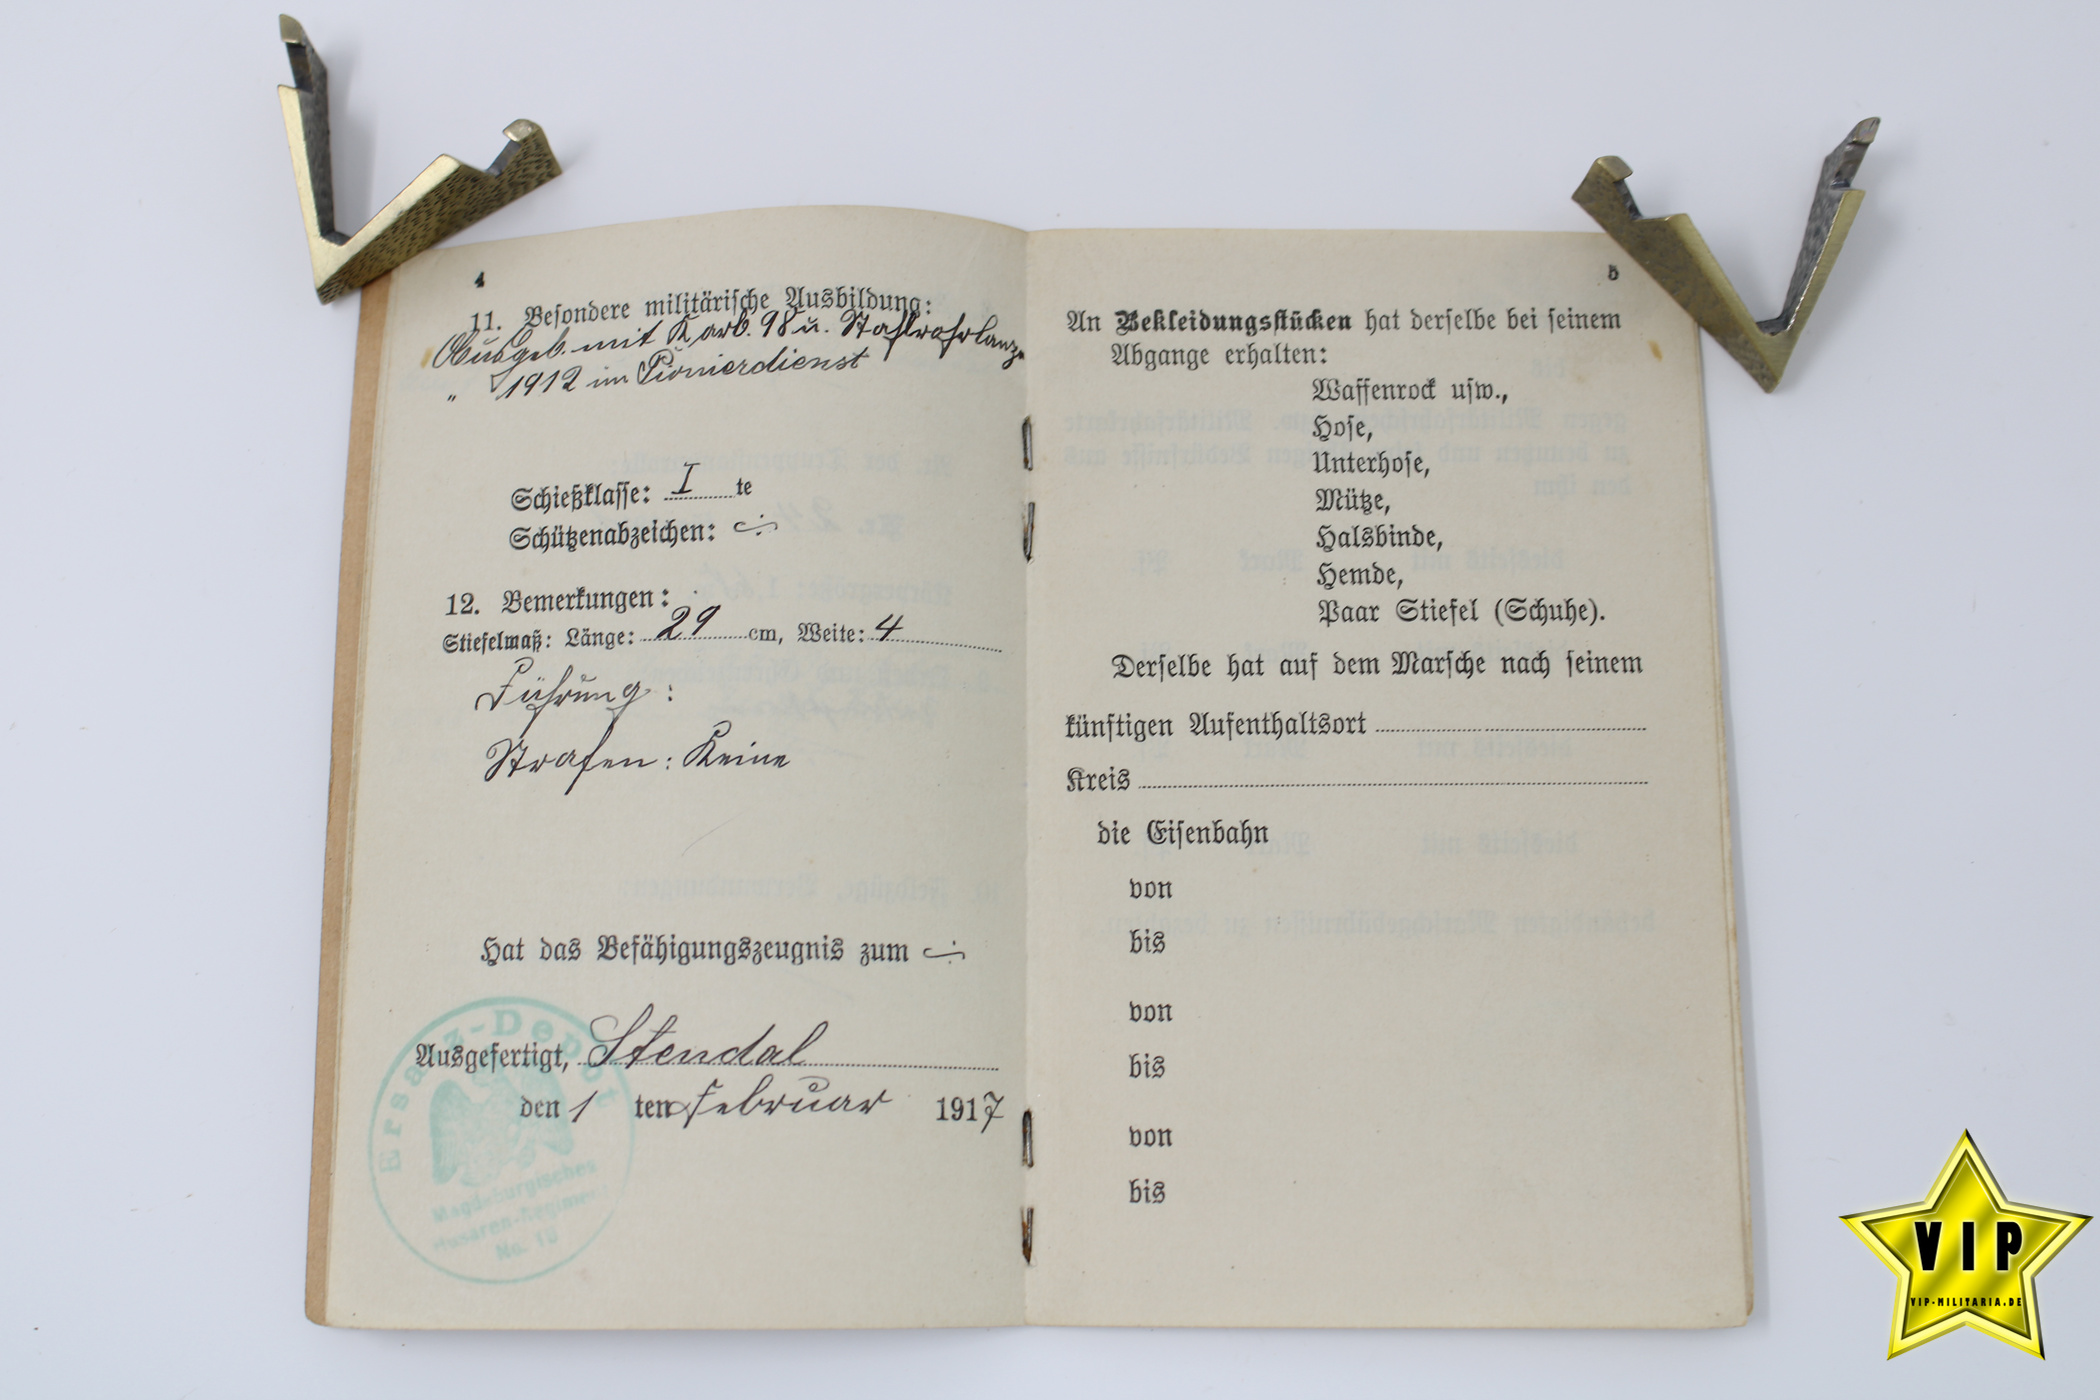 4
11. Besondere militärische Ausbildung:
Ausgeb. mit Karb. 98 u. Stahlrohrlanze
" 1912 im Pionierdienst
Schießklasse: I te
Schützenabzeichen: ·/·
12. Bemerkungen:
Stiefelmaß: Länge: 29 cm, Weite: 4
Führung:
Strafen: Keine
Hat das Befähigungszeugnis zum ·/·
Ausgefertigt, Stendal
den 1 ten Februar 1917
Ersatz-Depot
Magdeburgisches
Husaren-Regiment
No. 10
5
An Bekleidungsstücken hat derselbe bei seinem
Abgange erhalten:
Waffenrock usw.,
Hose,
Unterhose,
Mütze,
Halsbinde,
Hemde,
Paar Stiefel (Schuhe).
Derselbe hat auf dem Marsche nach seinem
künftigen Aufenthaltsort
Kreis
die Eisenbahn
von
bis
von
bis
von
bis
VIP
VIP-MILITARIA.DE